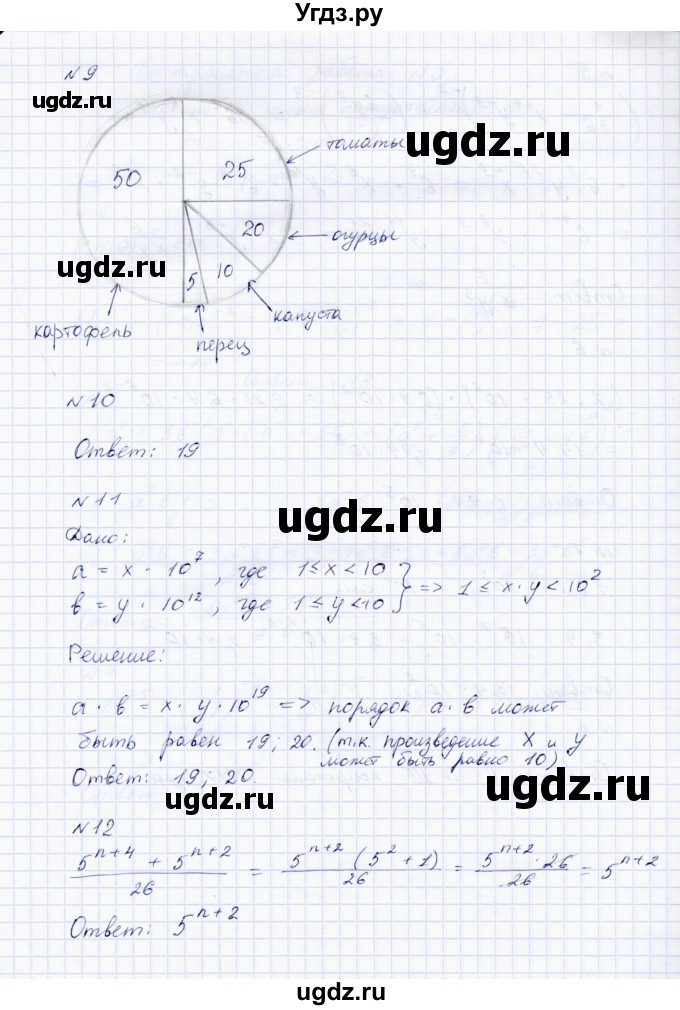 Угдз.ру
№9
ugdz.ru
томаты
ugdz.ru
25
50
20
огурцы
ugdz.ru
10
5
ugdz.ru
капуста
картофель
перец
№10
ugdz.ru
Ответ: 19
№11
ugdz.ru
Дано:
a = x · 10^7, где 1 ≤ x < 10 } => 1 ≤ x · y < 10^2
в = y · 10^12, где 1 ≤ y < 10
ugdz.ru
Решение:
a · в = x · y · 10^19 => порядок a · в может
быть равен 19; 20. (т.к. произведение x и y
может быть равно 10)
Ответ: 19; 20.
ugdz.ru
ugdz.ru
№12
(5^{n+4} + 5^{n+2})/26 = (5^{n+2} (5^2 + 1))/26 = (5^{n+2} · 26)/26 = 5^{n+2}
Ответ: 5^{n+2}
ugdz.ru
ugdz.ru